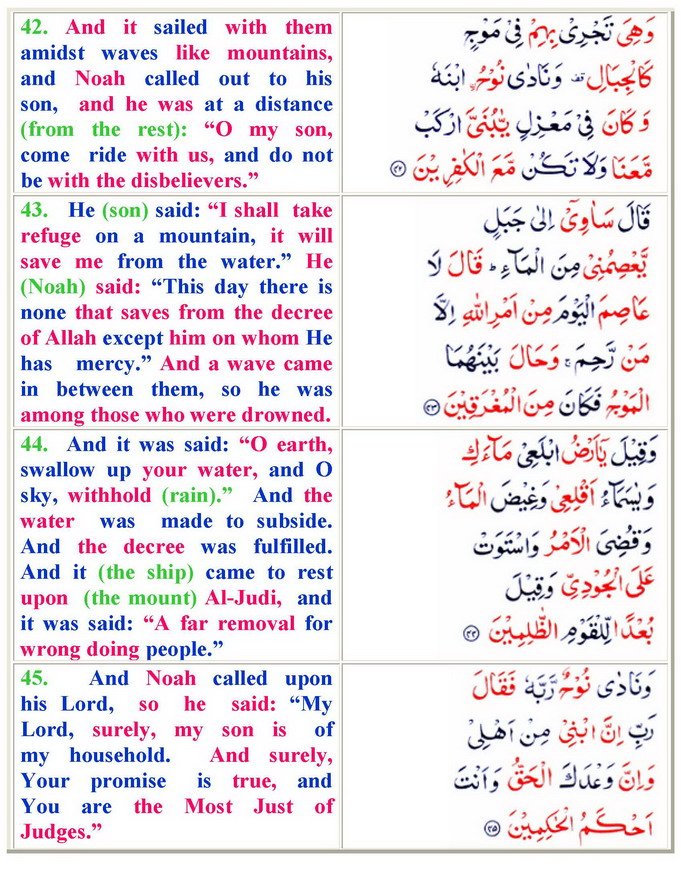 42. And it sailed with them
amidst waves like mountains,
and Noah called out to his
son, and he was at a distance
(from the rest): “O my son,
come ride with us, and do not
be with the disbelievers.”
وَهِيَ تَجْرِيْ بِهِمْ فِيْ مَوْجٍ
كَالْجِبَالِ قف وَنَادٰى نُوْحُ ۨ ابْنَهٗ
وَكَانَ فِيْ مَعْزِلٍ يّٰبُنَيَّ ارْكَبْ
مَّعَنَا وَلَا تَكُنْ مَّعَ الْكٰفِرِيْنَ ﴿۴۲﴾
43. He (son) said: “I shall take
refuge on a mountain, it will
save me from the water.” He
(Noah) said: “This day there is
none that saves from the decree
of Allah except him on whom He
has mercy.” And a wave came
in between them, so he was
among those who were drowned.
قَالَ سَاٰوِيْٓ اِلٰى جَبَلٍ
يَّعْصِمُنِيْ مِنَ الْمَآءِ ؕ قَالَ لَا
عَاصِمَ الْيَوْمَ مِنْ اَمْرِ اللّٰهِ اِلَّا
مَنْ رَّحِمَ ۚ وَحَالَ بَيْنَهُمَا
الْمَوْجُ فَكَانَ مِنَ الْمُغْرَقِيْنَ ﴿۴۳﴾
44. And it was said: “O earth,
swallow up your water, and O
sky, withhold (rain).” And the
water was made to subside.
And the decree was fulfilled.
And it (the ship) came to rest
upon (the mount) Al-Judi, and
it was said: “A far removal for
wrong doing people.”
وَقِيْلَ يٰٓاَرْضُ ابْلَعِيْ مَآءَكِ
وَيٰسَمَآءُ اَقْلِعِيْ وَغِيْضَ الْمَآءُ
وَقُضِيَ الْاَمْرُ وَاسْتَوَتْ
عَلَى الْجُوْدِيِّ وَقِيْلَ
بُعْدًا لِّلْقَوْمِ الظّٰلِمِيْنَ ﴿۴۴﴾
45. And Noah called upon
his Lord, so he said: “My
Lord, surely, my son is of
my household. And surely,
Your promise is true, and
You are the Most Just of
Judges.”
وَنَادٰى نُوْحٌ رَّبَّهٗ فَقَالَ
رَبِّ اِنَّ ابْنِيْ مِنْ اَهْلِيْ
وَاِنَّ وَعْدَكَ الْحَقُّ وَاَنْتَ
اَحْكَمُ الْحٰكِمِيْنَ ﴿۴۵﴾